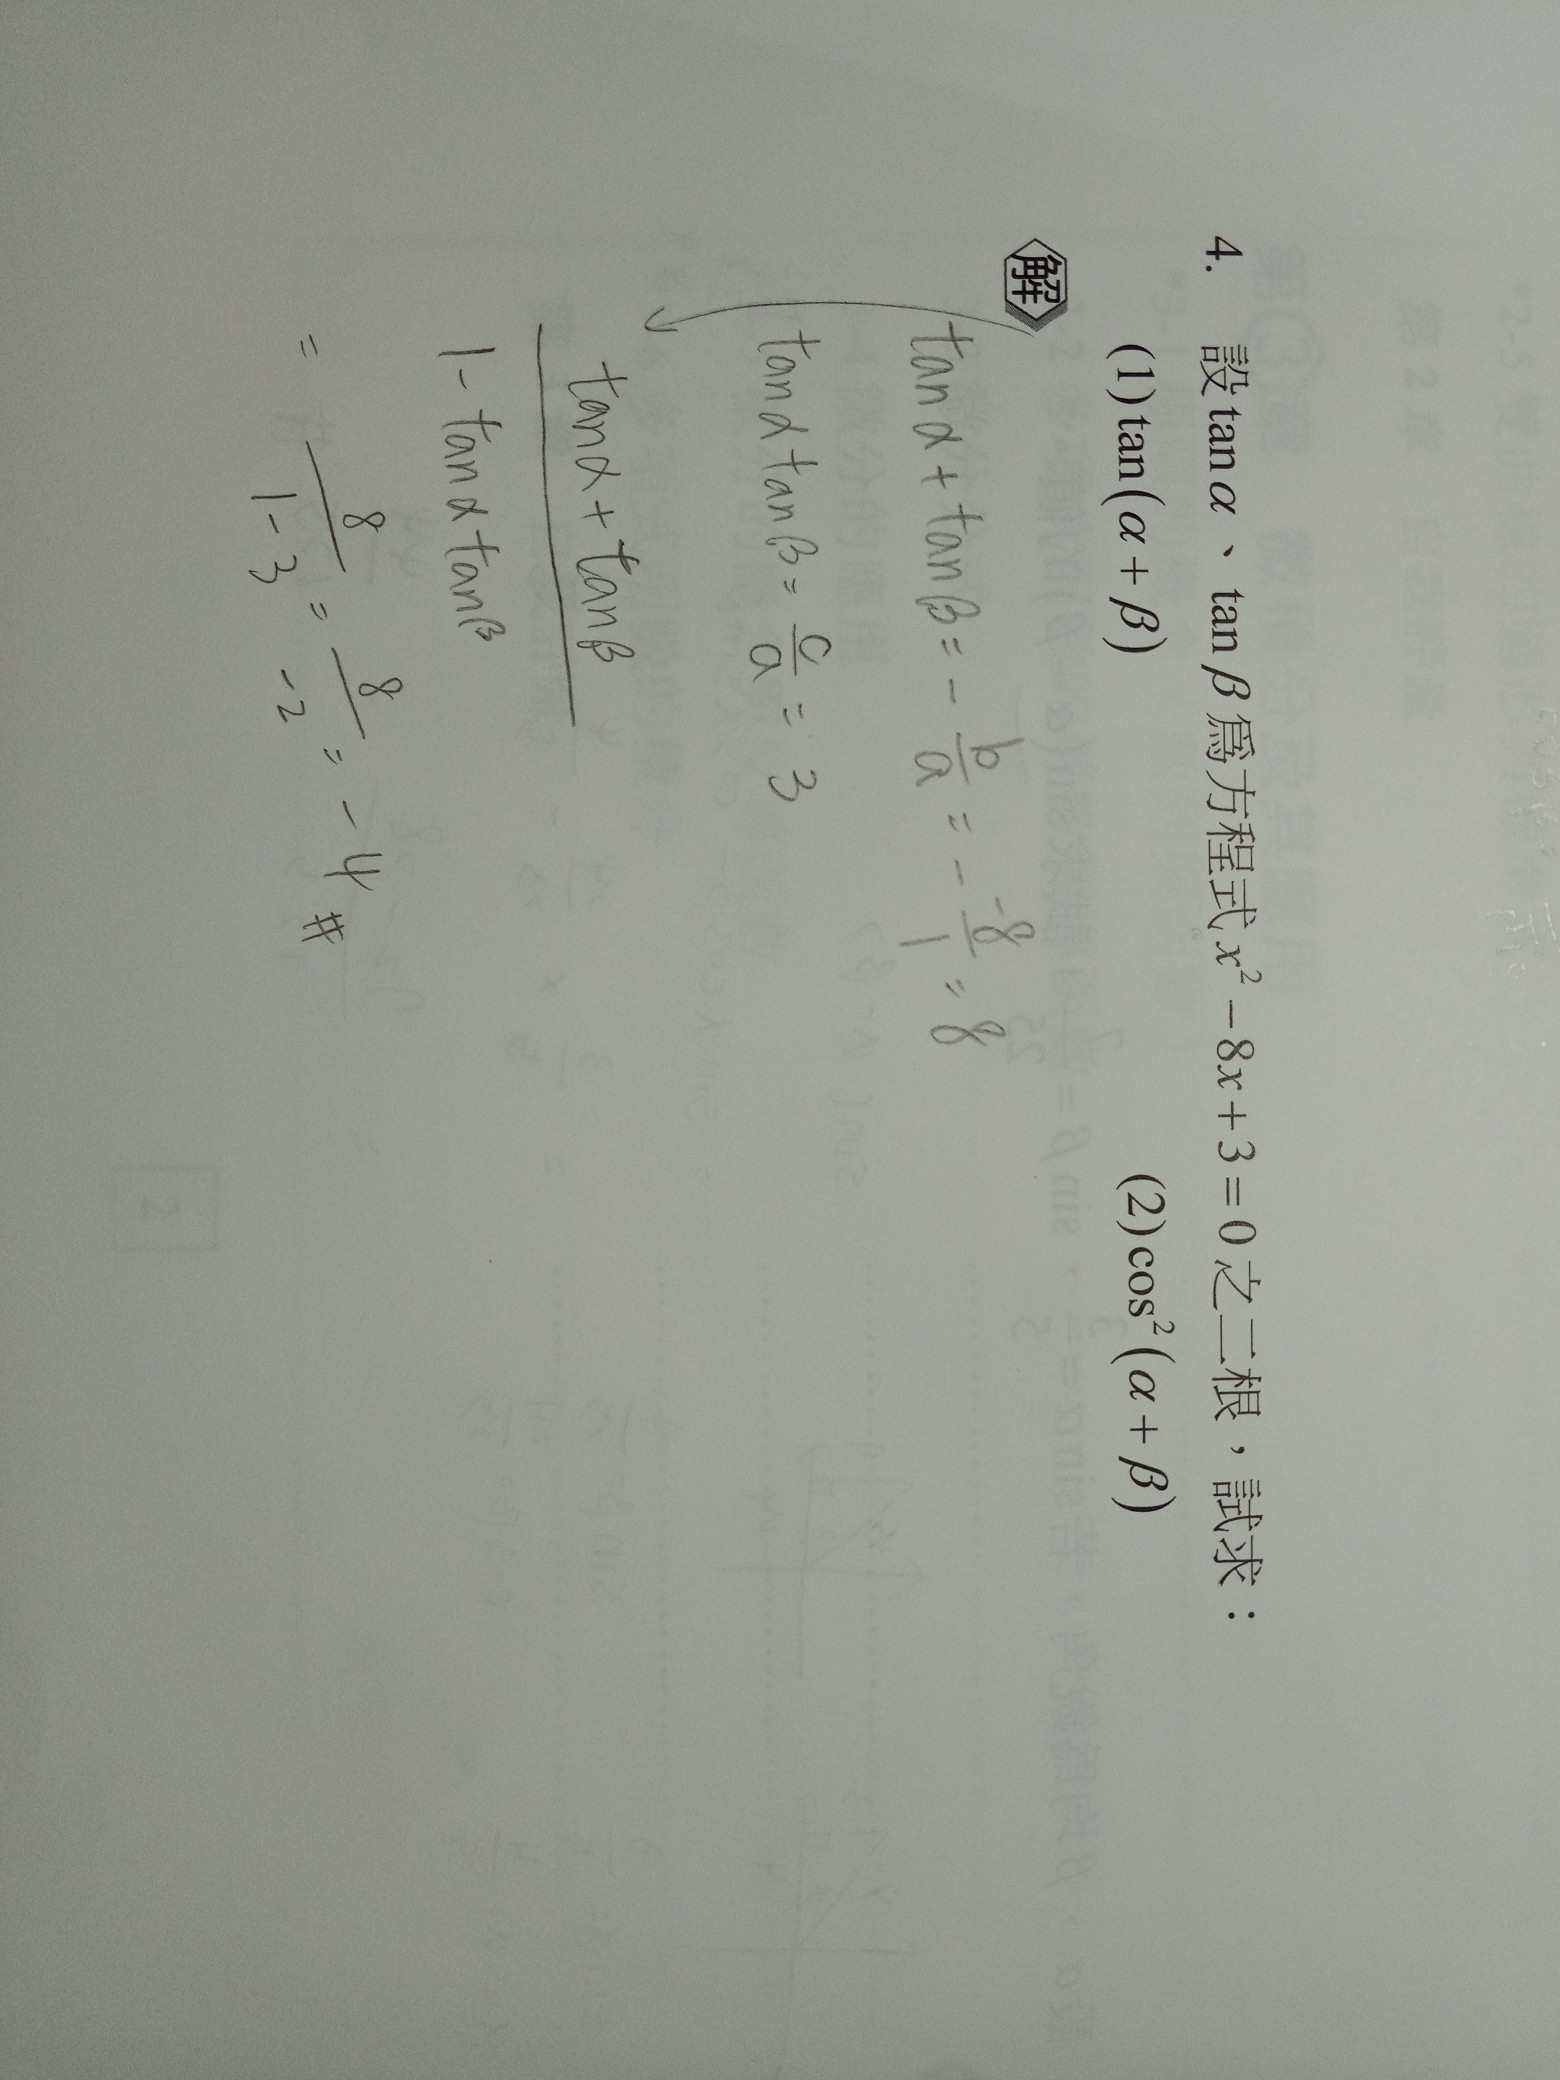 4. 設 tan α、tan β 為方程式 x² − 8x + 3 = 0 之二根，試求：
(1) tan(α + β) (2) cos²(α + β)
解
tanα + tanβ = - b/a = - -8/1 = 8
tanα tanβ = c/a = 3
tanα + tanβ
1 - tanα tanβ
= 8/1-3 = 8/-2 = -4 #